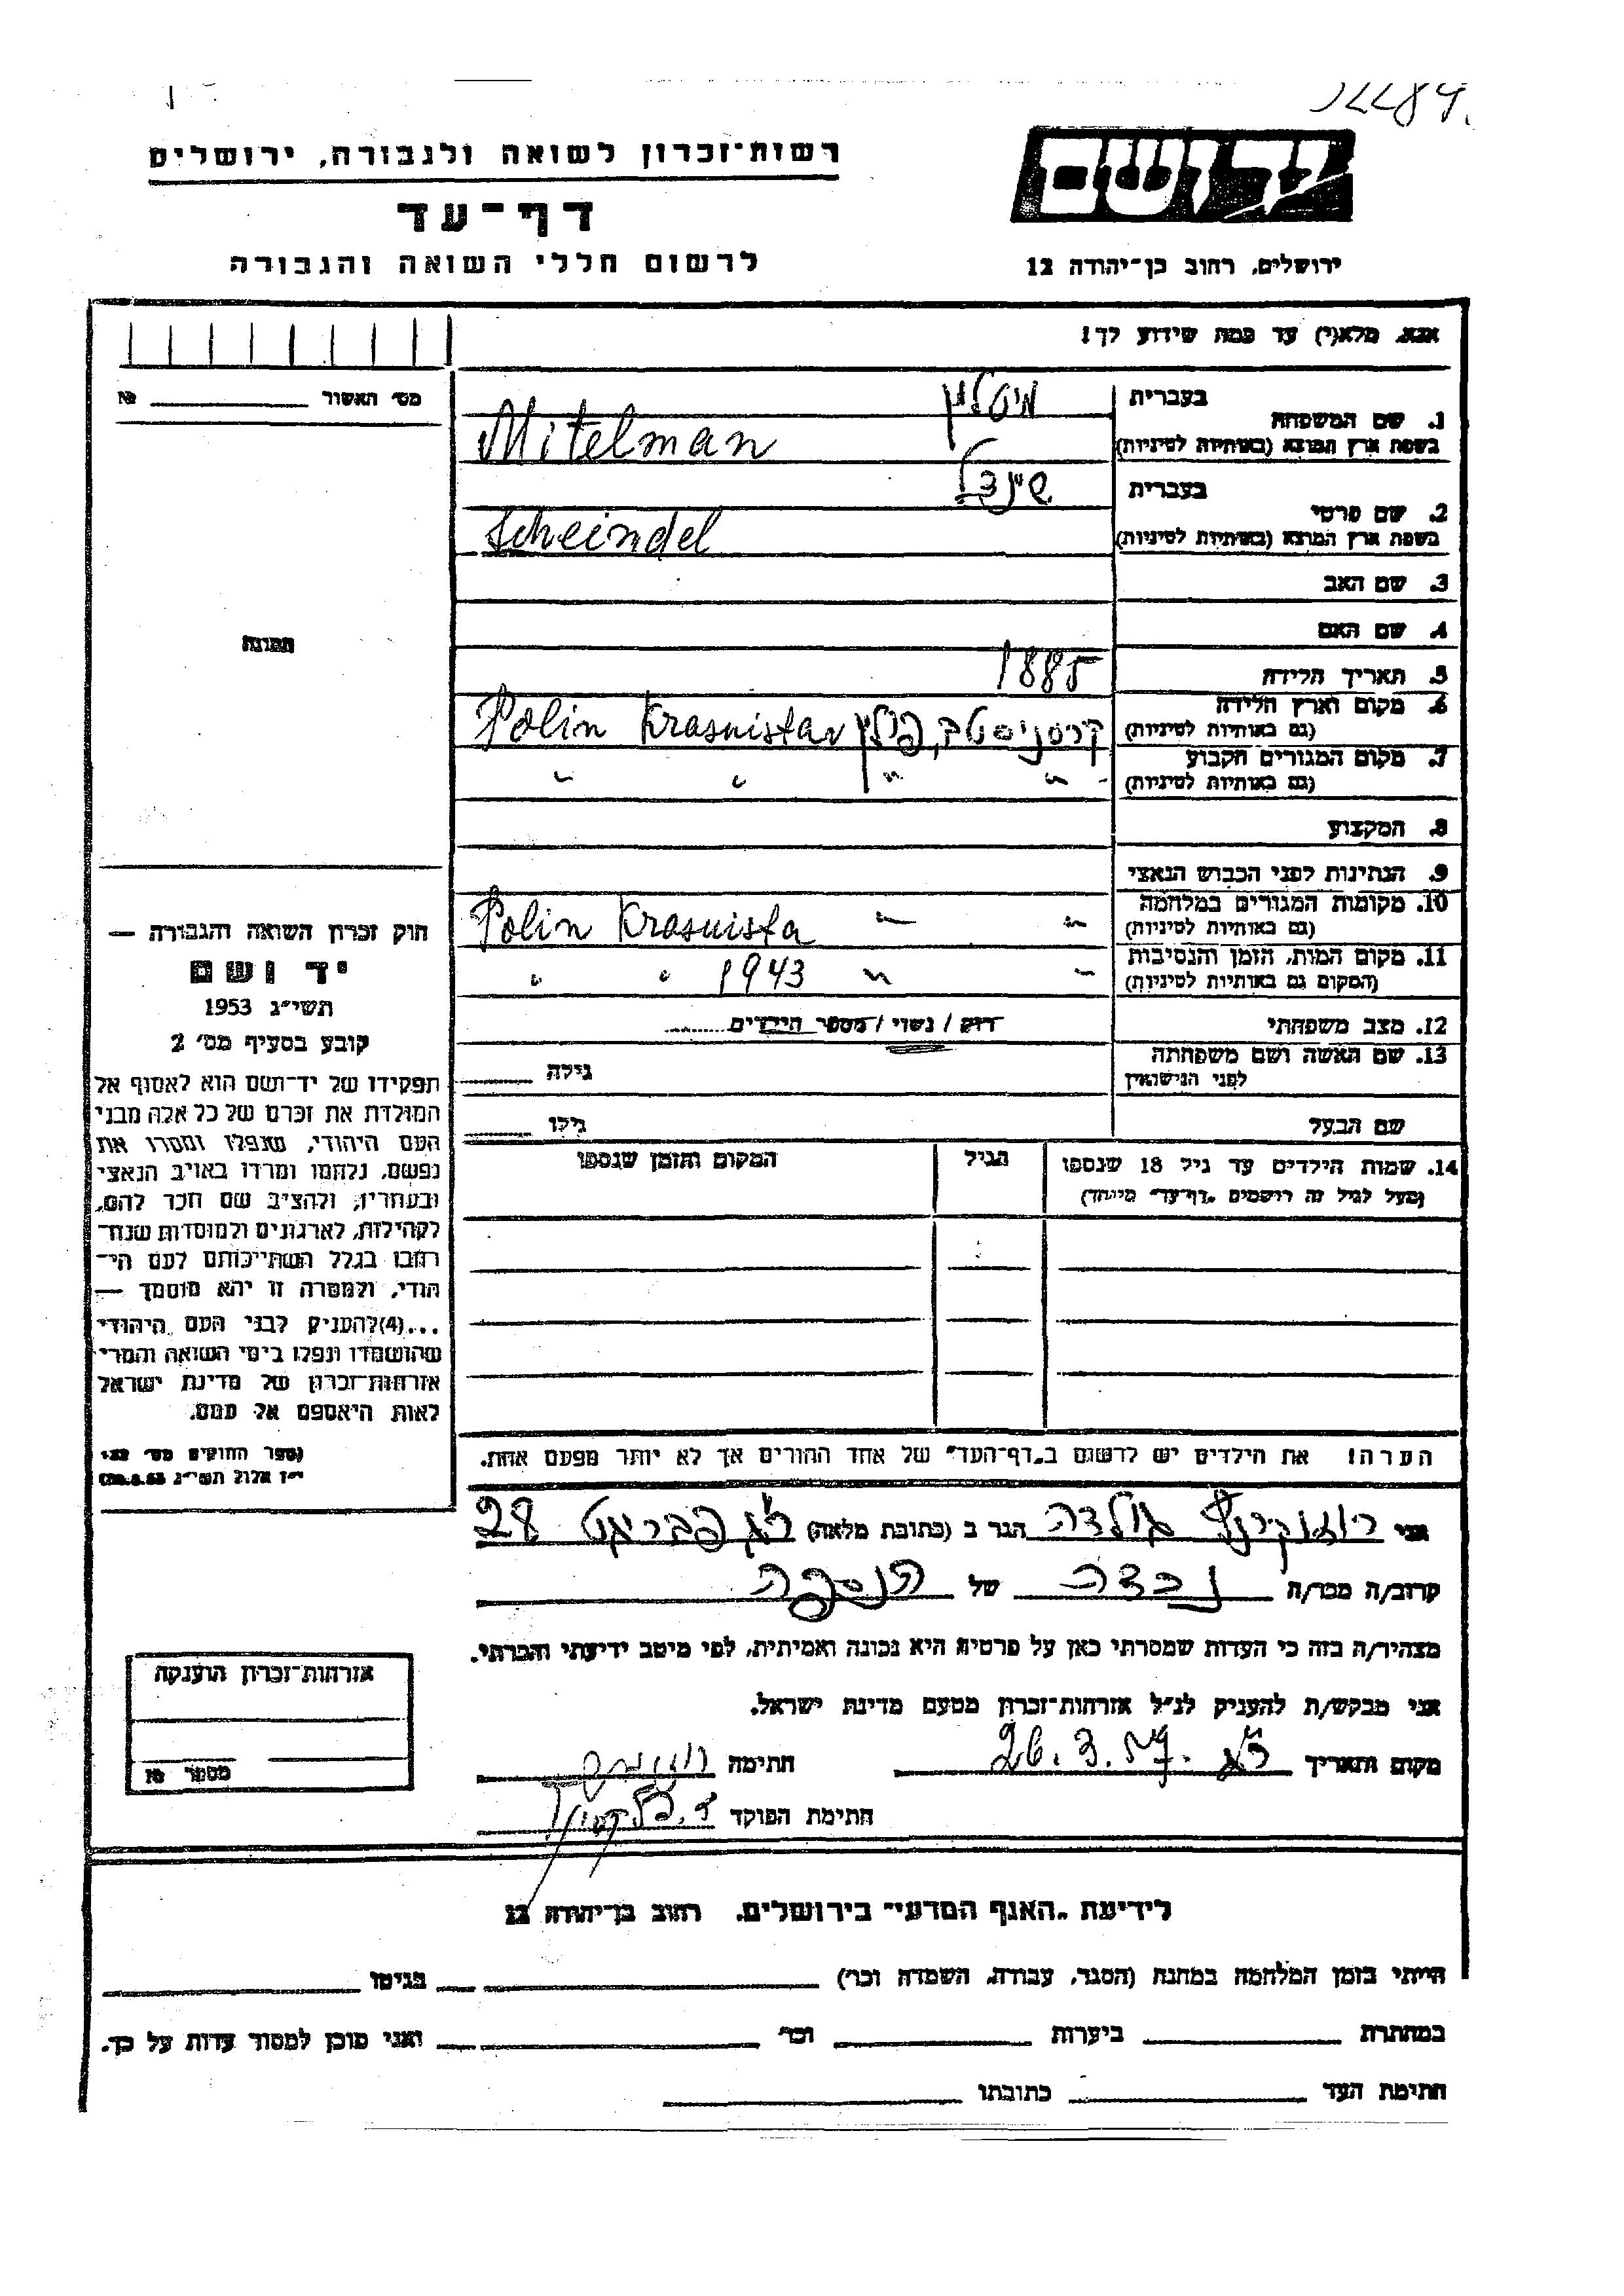 רשות־זכרון לשואה ולגבורה, ירושלים
דף־עד
לרשום חללי השואה והגבורה
יד ושם
ירושלים, רחוב בן־יהודה 12
אנא, מלא(י) עד כמה שידוע לך!
מס׳ האשור №
תמונה
1. שם המשפחה בעברית
בשפת ארץ המוצא (באותיות לטיניות)
Mitelman
2. שם פרטי בעברית שינדל
בשפת ארץ המוצא (באותיות לטיניות)
Scheindel
3. שם האב
4. שם האם
5. תאריך הלידה 1885
6. מקום וארץ הלידה
(גם באותיות לטיניות)
קרסניסטב, פולין Krasnistav Polin
7. מקום המגורים הקבוע
(גם באותיות לטיניות)
" " " "
8. המקצוע
9. הנתינות לפני הכבוש הנאצי
10. מקומות המגורים במלחמה
(גם באותיות לטיניות)
" " Polin Krasnista
11. מקום המות, הזמן והנסיבות
(המקום גם באותיות לטיניות)
" " 1943 " "
12. מצב משפחתי רווק / נשוי / מספר הילדים
13. שם האשה ושם משפחתה
לפני הנישואין
גילה
שם הבעל גילו
14. שמות הילדים עד גיל 18 שנספו הגיל המקום והזמן שנספו
(מעל לגיל זה רושמים "דף־עד" מיוחד)
הערה! את הילדים יש לרשום ב"דף־העד" של אחד ההורים אך לא יותר מפעם אחת.
חוק זכרון השואה והגבורה —
יד ושם
תשי״ג 1953
קובע בסעיף מס׳ 2
תפקידו של יד־ושם הוא לאסוף אל
המולדת את זכרם של כל אלה מבני
העם היהודי, שנפלו ומסרו את
נפשם, נלחמו ומרדו באויב הנאצי
ובעוזריו, ולהציב שם וזכר להם,
לקהילות, לארגונים ולמוסדות שנח־
רבו בגלל השתייכותם לעם הי־
הודי, ולמטרה זו יהא מוסמך —
...(4) להעניק לבני העם היהודי
שהושמדו ונפלו בימי השואה והמרי
אזרחות־זכרון של מדינת ישראל
לאות היאספם אל עמם.
(ספר החוקים מס׳ 132
י״ז אלול תשי״ג 28.8.53)
אני גולדה הגר ב (כתובת מלאה) 28
קרוב/ה מכר/ה נכדה של הנספה
מצהיר/ה בזה כי העדות שמסרתי כאן על פרטיה היא נכונה ואמיתית, לפי מיטב ידיעתי והכרתי.
אני מבקש/ת להעניק לנ״ל אזרחות־זכרון מטעם מדינת ישראל.
מקום ותאריך ר״ג חתימה
חתימת הפוקד
אזרחות־זכרון הוענקה
מספר
לידיעת "האגף המדעי" בירושלים, רחוב בן־יהודה 12
הייתי בזמן המלחמה במחנה (הסגר, עבודה, השמדה וכו׳) בגיטו
במחתרת ביערות וכו׳ ואני מוכן למסור עדות על כך.
חתימת העד כתובתו